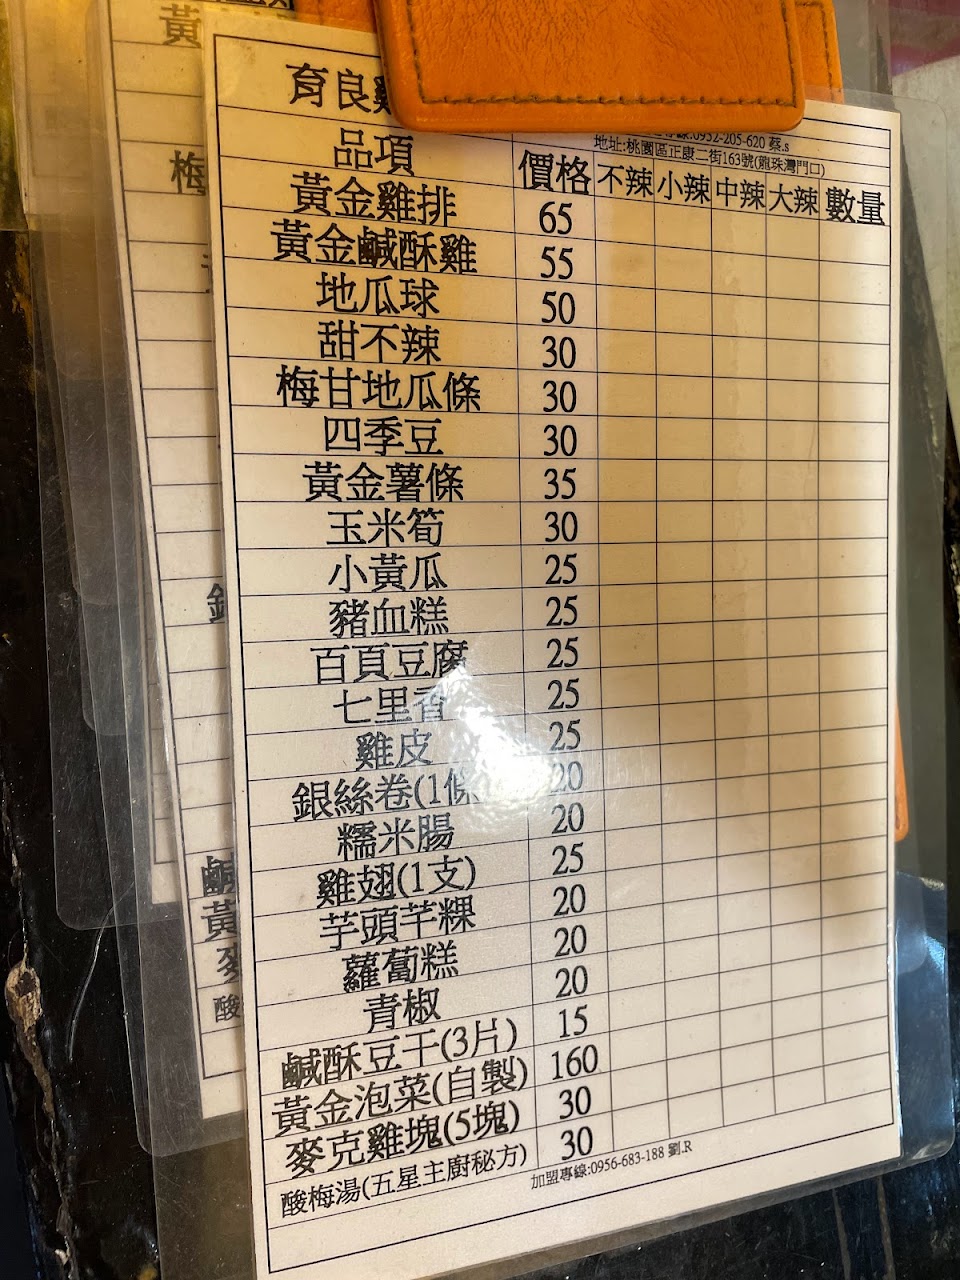 育良雞
0952-205-620 蔡.s
地址:桃園區正康二街163號(龍珠灣門口)
品項 價格 不辣 小辣 中辣 大辣 數量
黃金雞排 65
黃金鹹酥雞 55
地瓜球 50
甜不辣 30
梅甘地瓜條 30
四季豆 30
黃金薯條 35
玉米筍 30
小黃瓜 25
豬血糕 25
百頁豆腐 25
七里香 25
雞皮 25
銀絲卷(1條 20
糯米腸 20
雞翅(1支) 25
芋頭芋粿 20
蘿蔔糕 20
青椒 20
鹹酥豆干(3片) 15
黃金泡菜(自製) 160
麥克雞塊(5塊) 30
酸梅湯(五星主廚秘方) 30
加盟專線:0956-683-188 劉.R